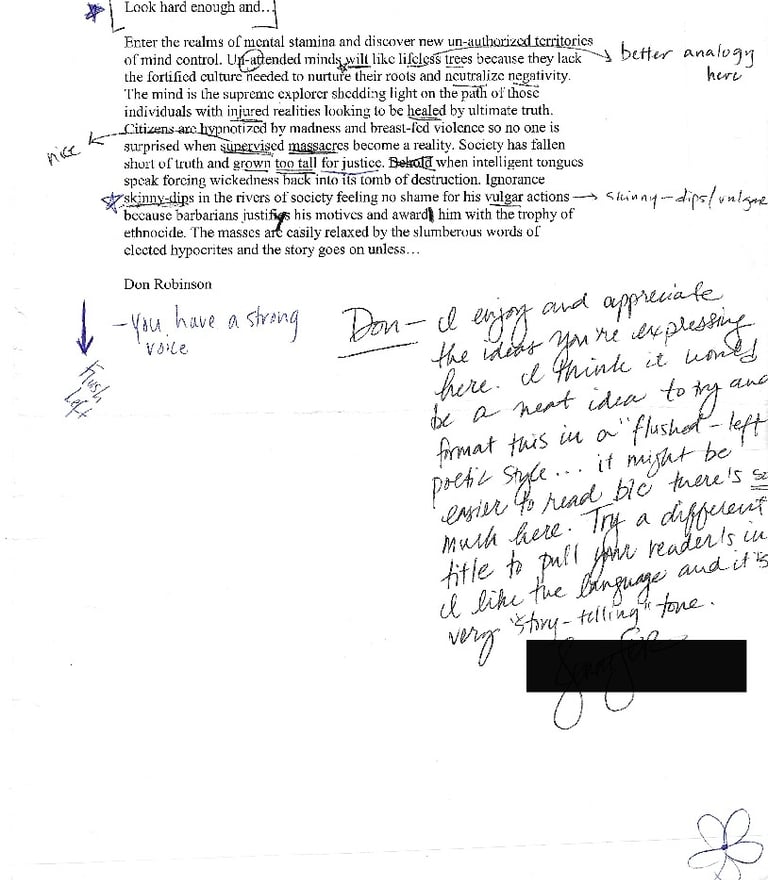 Look hard enough and...
Enter the realms of mental stamina and discover new un-authorized territories
of mind control. Un-attended minds will like lifeless trees because they lack
the fortified culture needed to nurture their roots and neutralize negativity.
The mind is the supreme explorer shedding light on the path of those
individuals with injured realities looking to be healed by ultimate truth.
Citizens are hypnotized by madness and breast-fed violence so no one is
surprised when supervised massacres become a reality. Society has fallen
short of truth and grown too tall for justice. Behold when intelligent tongues
speak forcing wickedness back into its tomb of destruction. Ignorance
skinny-dips in the rivers of society feeling no shame for his vulgar actions
because barbarians justifies his motives and award him with the trophy of
ethnocide. The masses are easily relaxed by the slumberous words of
elected hypocrites and the story goes on unless...
Don Robinson
better analogy
here
nice
skinny-dips/vulgar
- You have a strong
voice
flush
left
Don - I enjoy and appreciate
the ideas you're expressing
here. I think it would
be a neat idea to try and
format this in a "flushed-left
poetic style... it might be
easier to read b/c there's so
much here. Try a different
title to pull your reader's in
I like the language and it's
very "story-telling" tone.